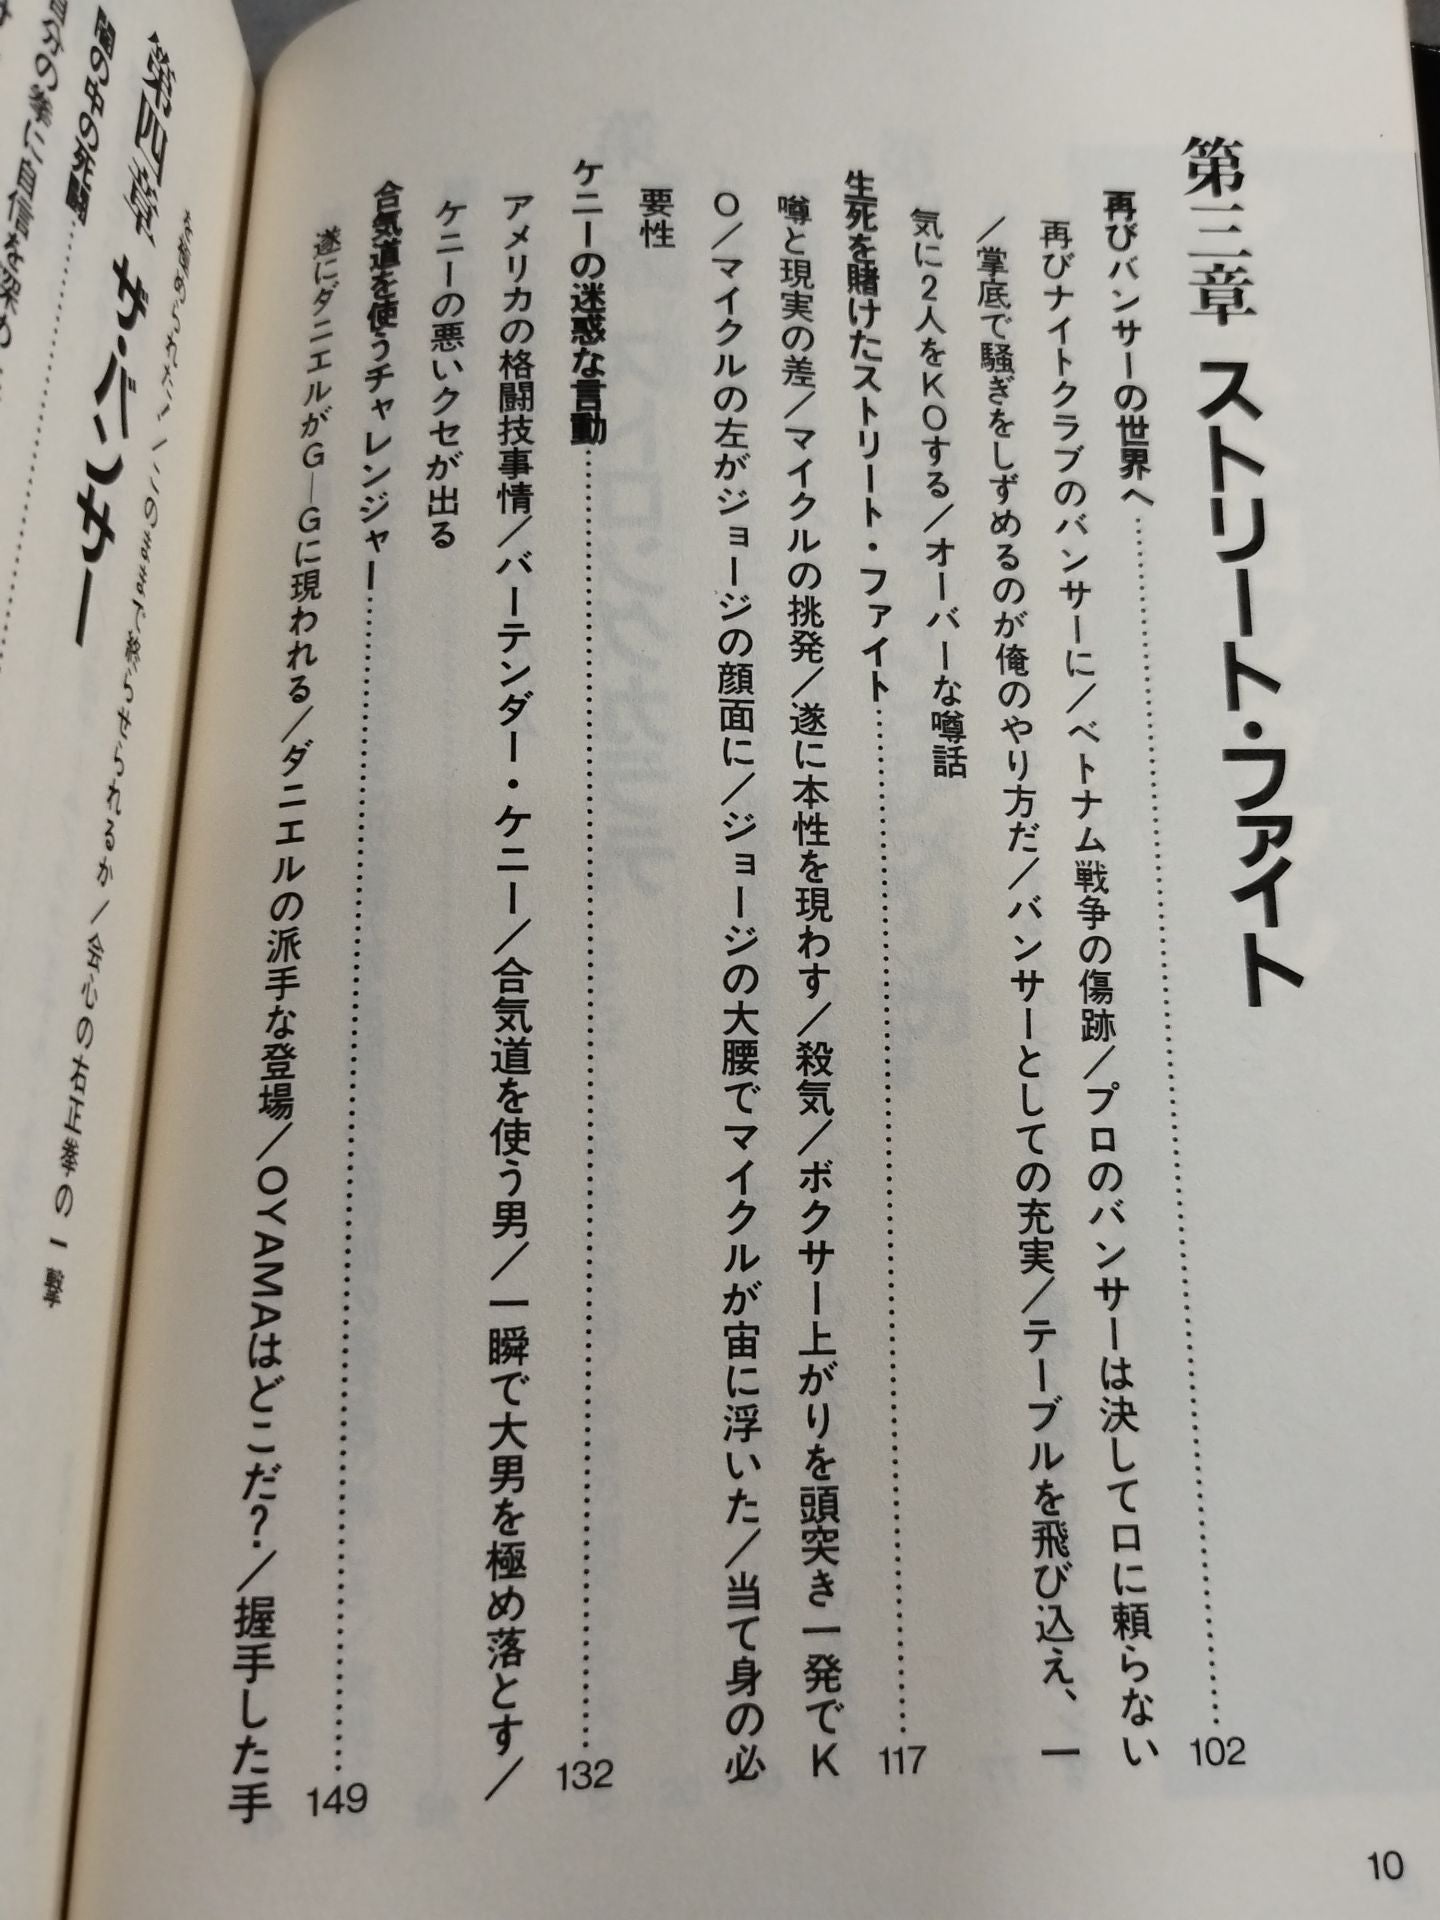 第三章 ストリート・ファイト
再びバンサーの世界へ……………………………102
再びナイトクラブのバンサーに/ベトナム戦争の傷跡/プロのバンサーは決して口に頼らない
/掌底で騒ぎをしずめるのが俺のやり方だ/バンサーとしての充実/テーブルを飛び込え、一
気に2人をKOする/オーバーな噂話
生死を賭けたストリート・ファイト……………………………117
噂と現実の差/マイクルの挑発/遂に本性を現わす/殺気/ボクサー上がりを頭突き一発でK
O/マイクルの左がジョージの顔面に/ジョージの大腰でマイクルが宙に浮いた/当て身の必
要性
ケニーの迷惑な言動……………………………132
アメリカの格闘技事情/バーテンダー・ケニー/合気道を使う男/一瞬で大男を極め落とす/
ケニーの悪いクセが出る
合気道を使うチャレンジャー……………………………149
遂にダニエルがG―Gに現われる/ダニエルの派手な登場/OYAMAはどこだ?/握手した手
10
を極められた!/このままで終らせられるか/会心の右正拳の一撃
第四章 ザ・バンサー
闇の中の死闘……………
自分の拳に自信を深め